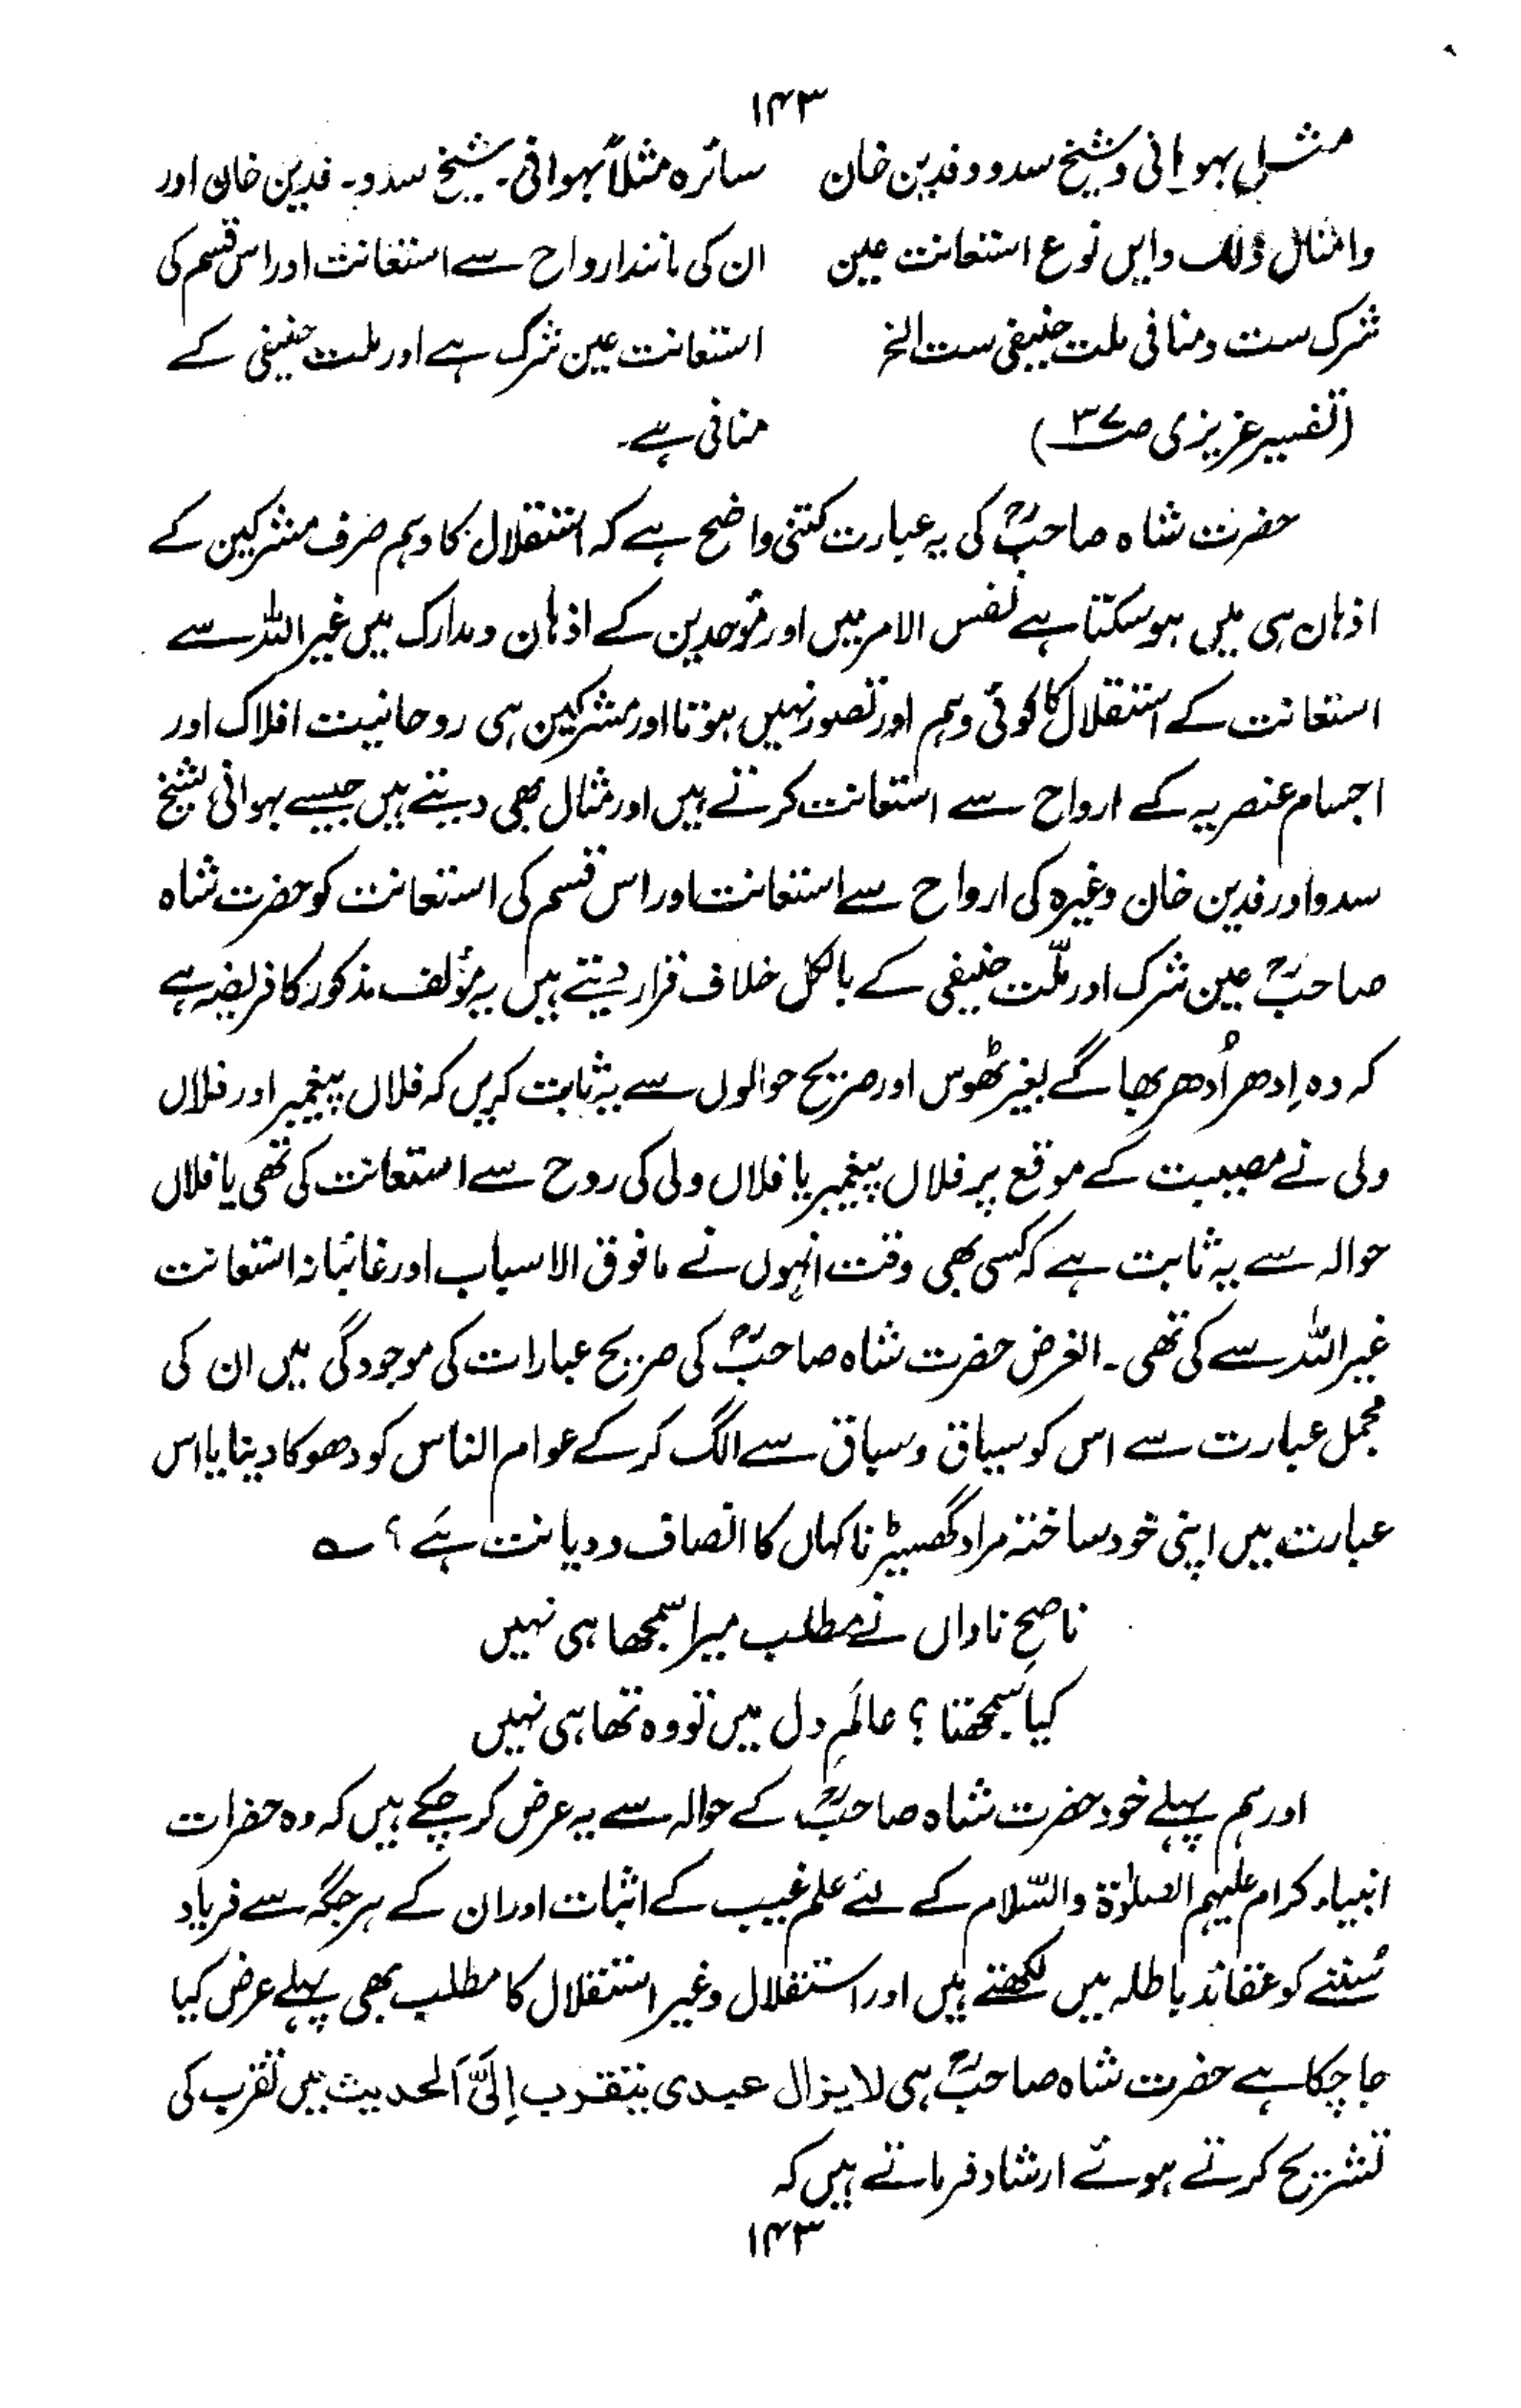 ۱۴۳
مثل بہوانی وشیخ سدو وفدین خان
وامثال ذلک وایں نوع استعانت عین
شرک ست ومنافی ملت حنیفی ست الخ
(تفسیر عزیزی ص۳۷)
سائرہ مثلاً بہوانی۔ شیخ سدو۔ فدین خان اور
ان کی مانند ارواح سے استعانت اور اس قسم کی
استعانت عین شرک ہے اور ملت حنیفی کے
منافی ہے۔
حضرت شاہ صاحبؒ کی یہ عبارت کتنی واضح ہے کہ استقلال کا وہم صرف مشرکین کے
اذہان ہی میں ہو سکتا ہے نفس الامر میں اور مُوحدین کے اذہان ومدارک میں غیر اللہ سے
استعانت کے استقلال کا کوئی وہم اور تصور نہیں ہوتا اور مشرکین ہی روحانیت افلاک اور
اجسام عنصریہ کے ارواح سے استعانت کرتے ہیں اور مثال بھی دیتے ہیں جیسے بہوانی شیخ
سدو اور فدین خان وغیرہ کی ارواح سے استعانت اور اس قسم کی استعانت کو حضرت شاہ
صاحبؒ عین شرک اور ملّت حنیفی کے بالکل خلاف قرار دیتے ہیں یہ مؤلف مذکور کا فریضہ ہے
کہ وہ اِدھر اُدھر بھاگے بغیر ٹھوس اور صریح حوالوں سے یہ ثابت کریں کہ فلاں پیغمبر اور فلاں
ولی نے مصیبت کے موقع پر فلاں پیغمبر یا فلاں ولی کی روح سے استعانت کی تھی یا فلاں
حوالہ سے یہ ثابت ہے کہ کسی بھی وقت انہوں نے مافوق الاسباب اور غائبانہ استعانت
غیر اللہ سے کی تھی۔ الغرض حضرت شاہ صاحبؒ کی صریح عبارات کی موجودگی میں ان کی
مجمل عبارت سے اس کو سیاق وسباق سے الگ کرکے عوام الناس کو دھوکا دینا یا اس
عبارت میں اپنی خودساختہ مراد گھسیڑنا کہاں کا انصاف ودیانت ہے؟ ؎
ناصحِ ناداں نے مطلب میرا سمجھا ہی نہیں
کیا سمجھتا؟ عالَمِ دل میں تو وہ تھا ہی نہیں
اور ہم پہلے خود حضرت شاہ صاحبؒ کے حوالہ سے یہ عرض کر چکے ہیں کہ وہ حضرات
انبیاء کرام علیہم الصلوٰۃ والسّلام کے لئے علم غیب کے اثبات اور ان کے ہر جگہ سے فریاد
سُننے کو عقائد باطلہ میں لکھتے ہیں اور استقلال وغیر استقلال کا مطلب بھی پہلے عرض کیا
جا چکا ہے حضرت شاہ صاحبؒ ہی لایزال عبدی یتقرب اِلَیَّ اَلحدیث میں تقرب کی
تشریح کرتے ہوئے ارشاد فرماتے ہیں کہ
۱۴۳